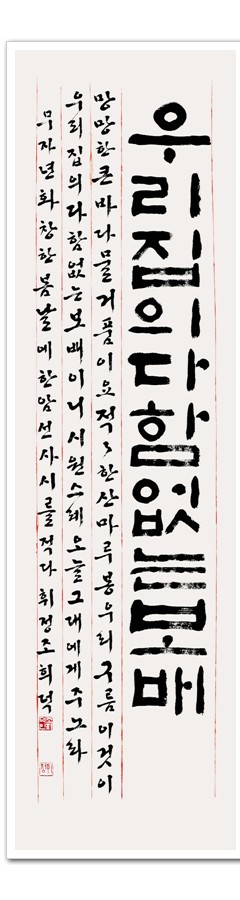 우리집의다함없는보배
망망한큰바다물거품이요적적한산마루봉우리구름이것이
우리집의다함없는보배이니시원스레오늘그대에게주노라
무자년화창한봄날에한암선사시를적다휘정조희덕